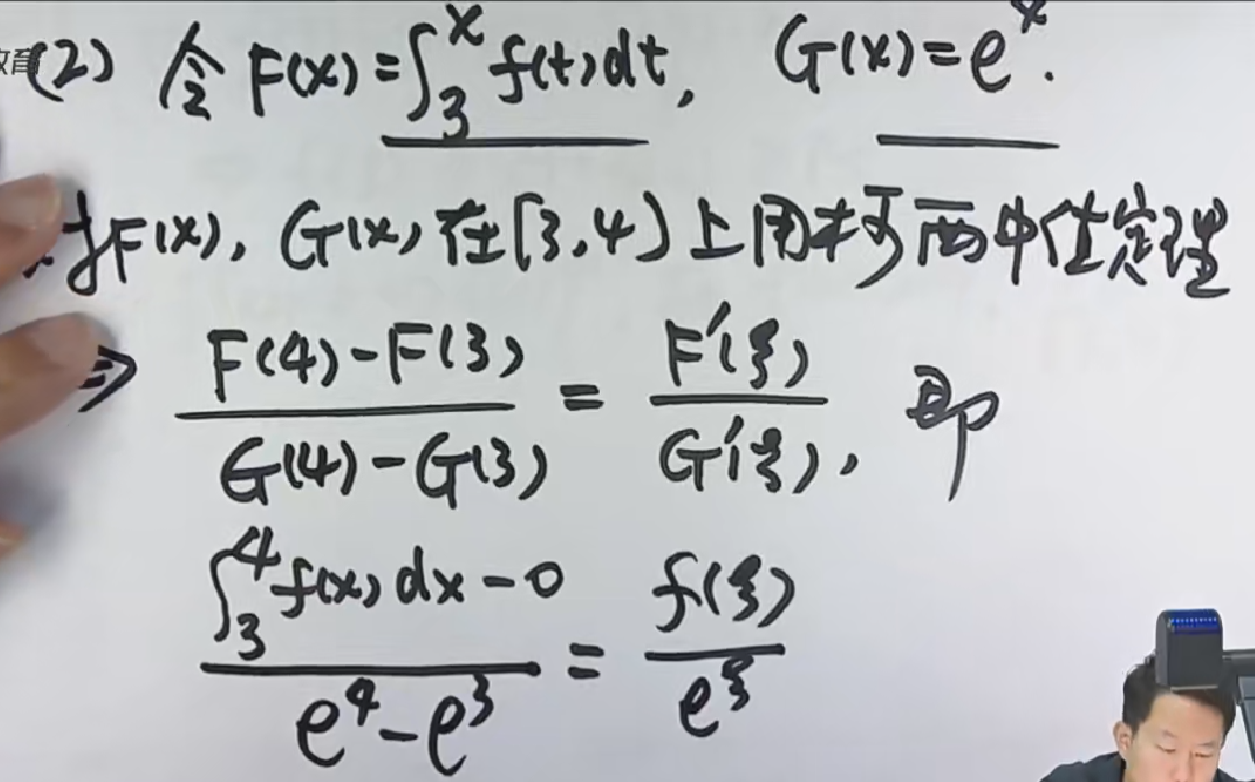 教育
(2) 令 F(x)=∫₃ˣ f(t)dt, G(x)=eˣ.
对F(x), G(x)在[3,4]上用柯西中值定理
⇒ (F(4)-F(3))/(G(4)-G(3)) = F′(ξ)/G′(ξ), 即
(∫₃⁴ f(x)dx-0)/(e⁴-e³) = f(ξ)/e^ξ